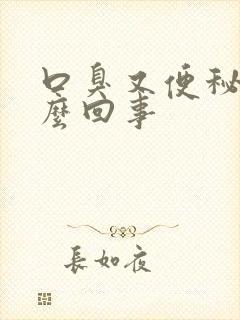 口臭又便秘
麼回事
長如夜